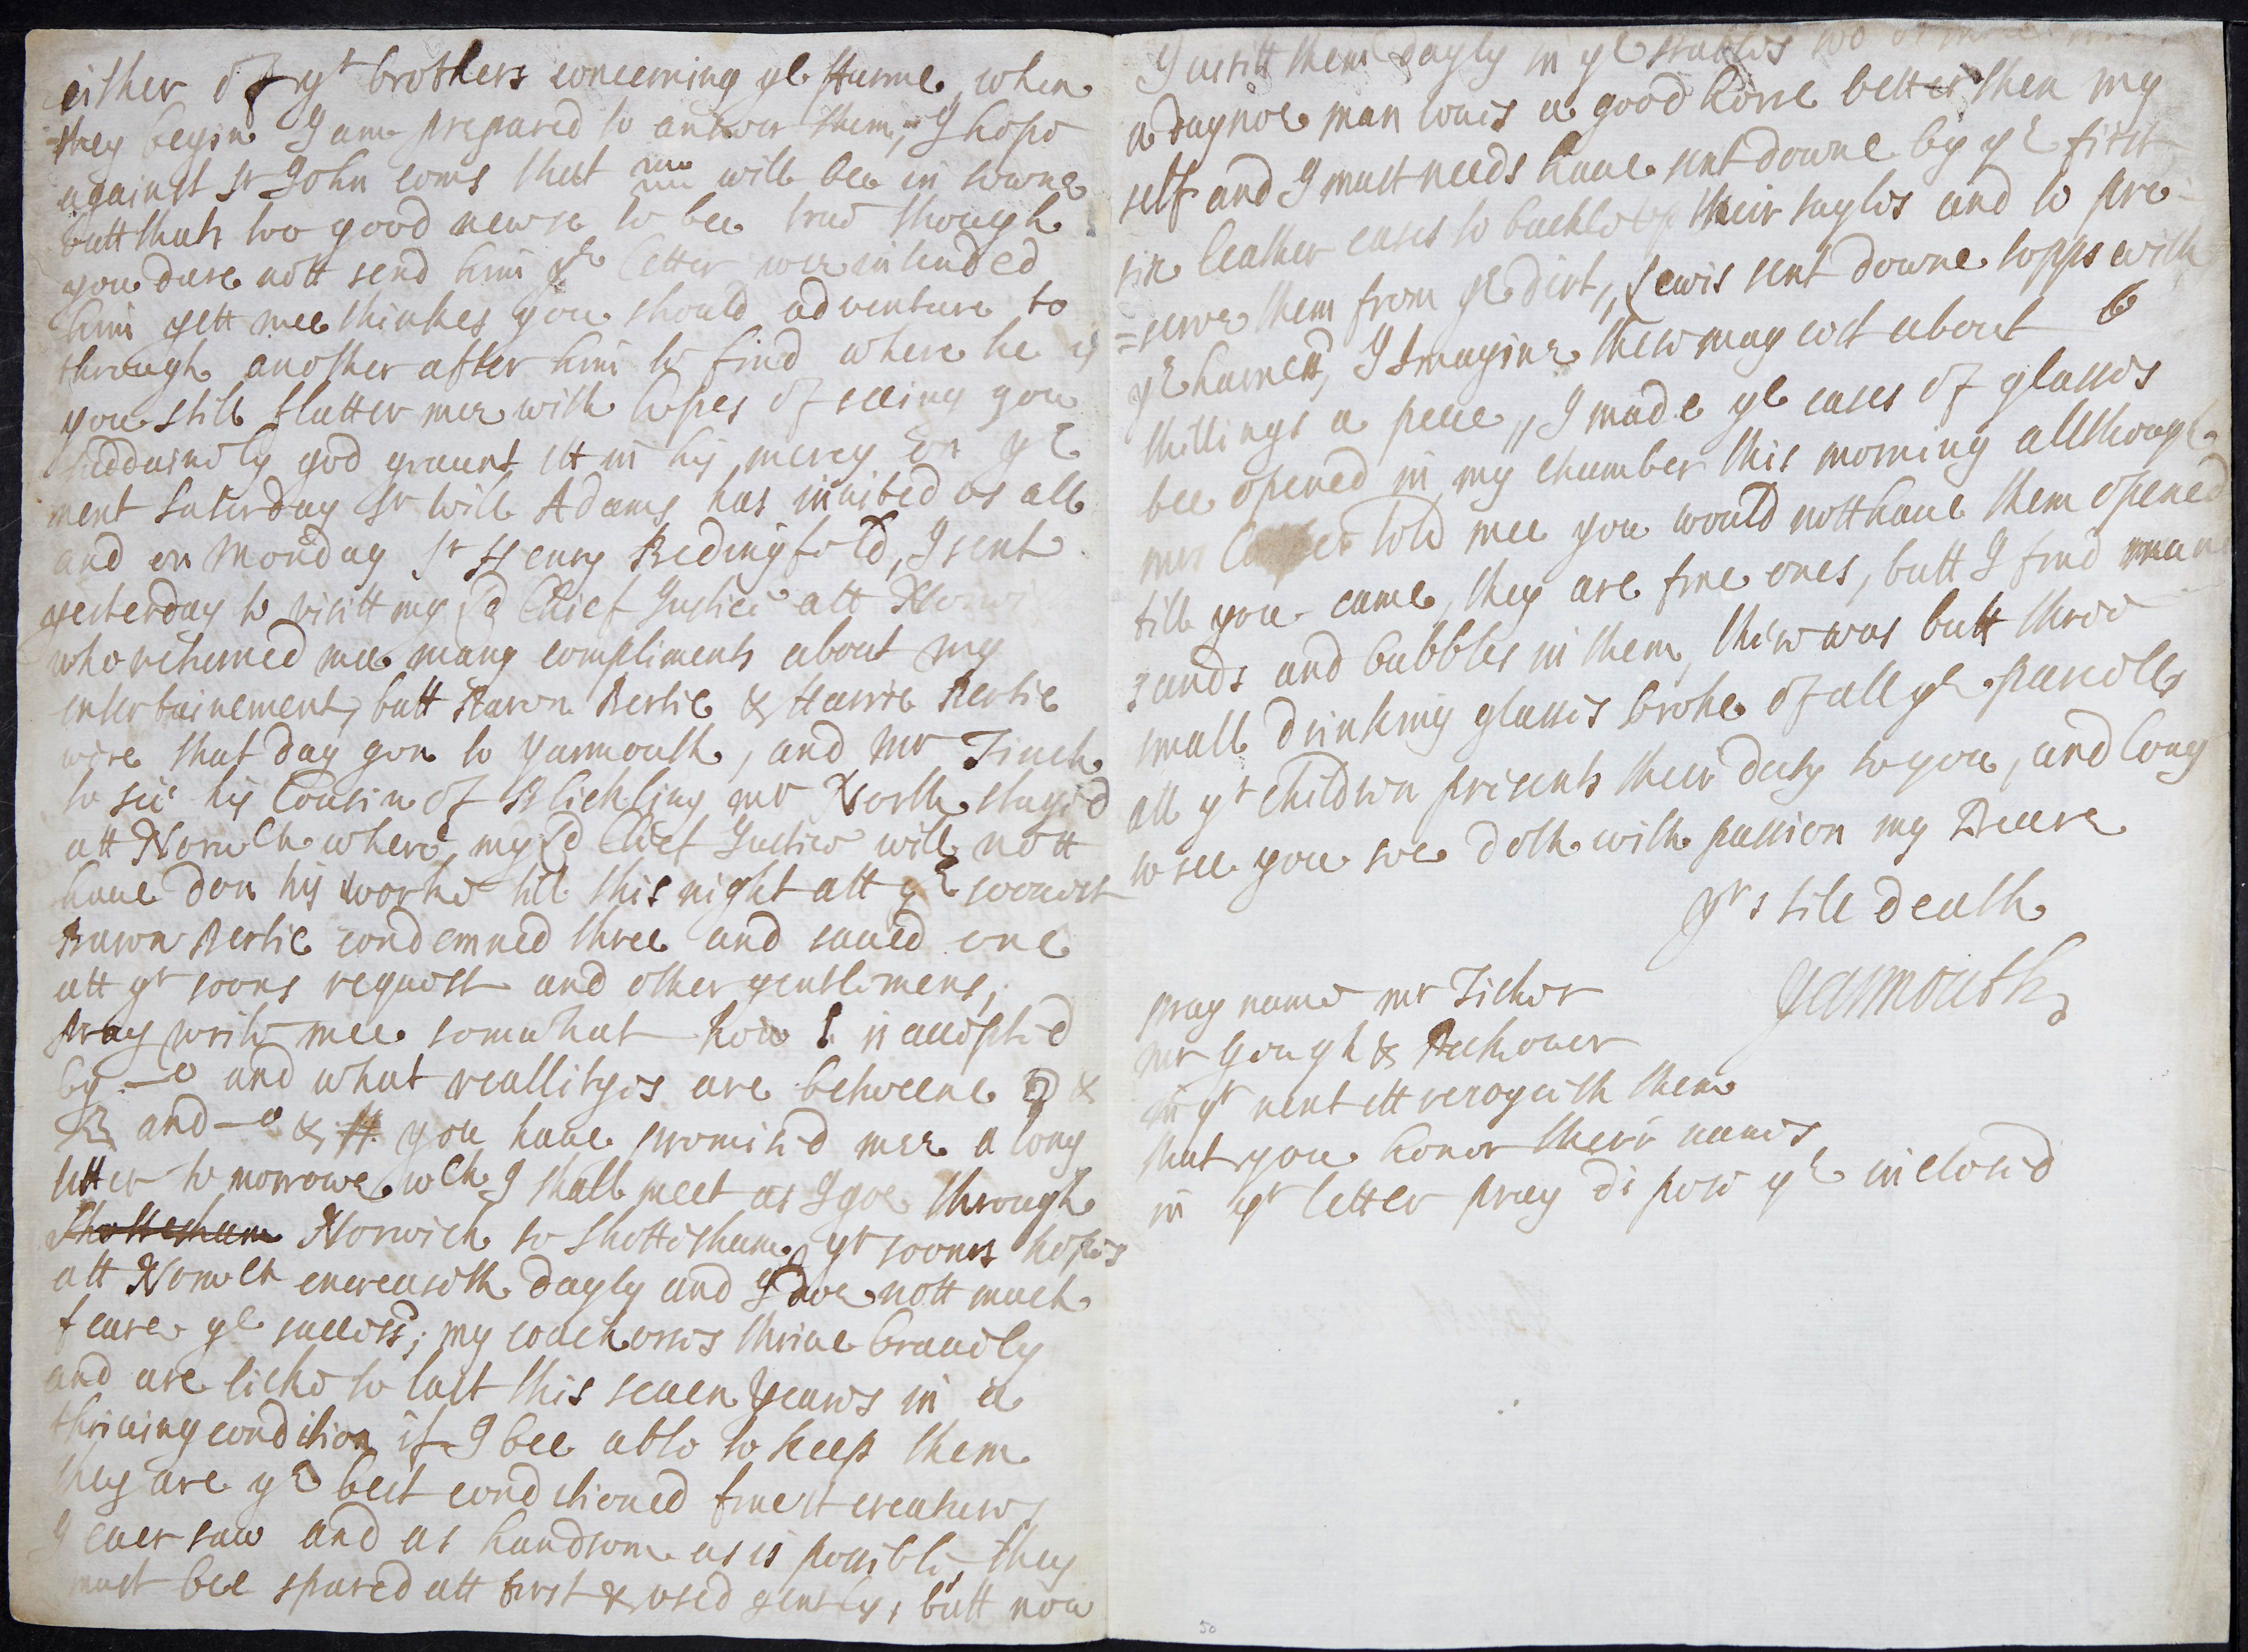 either off yr brothers concerning ye same, when
they begin I am prepared to answer them, I hope
against Sr John coms that will bee in towne
butt thats too good newse to bee true though
you dare nott send him ye letter wee intended
him yett mee thinkes you should adventure to
through another after him to find where he is
you still flatter mee with hopes of seeing you
suddainely god graunt itt in his mercy on ye
next Saturday Sr Will Adams has invited us all
and on Monday Sr Henry Bedingfeld, I sent
yesterday to visitt my Ld Chief Justice att
who returned mee many compliments about my
intertainement, butt Baron Bertie & Harrie Bertie
were that day gon to Yarmouth, and Mr Finch
to see his Cousin of Blickling mr North stayed
att Norwch where my Ld Chief Justice will nott
have don his worke till this night att ye soonest
Baron Bertie condemned three and saved one
att yr soons request and other gentlemens,
pray write mee somwhat how is accepted
by —o and what reallityes are betweene &
and —o & you have promised mee a long
letter to morrowe wch I shall meet as I goe through
Norwich to Shottisham, yr soones hopes
att Norwch encreaseth dayly and I doe nott much
feare ye success; my coach orses thrive bravely
and are licke to last this seaven years in a
thriving condition if I bee able to keep them
they are ye best conditioned finest creatures
I ever saw and as handsom as is possible, they
must bee spared att first & used gently, butt now
I visitt them dayly in ye stables
a day noe man loves a good horse better then my
self and I must needs have sent downe by ye first
six leather cases to buckle up their tayles and to pre-
=serve them from ye dirt, Lewis sent downe topps with
ye harness, I Imagine these may cost about 6
shillings a peece,, I made ye cases of glasses
bee opened in my chamber this morning allthough
mrs told mee you would nott have them opened
till you came, they are fine ones, butt I find many
sands and bubbles in them, there was butt three
small drinking glasses broke of all ye parcells
all yr children presents their duty to you, and long
to see you soe doth with passion my Deare
yrs till death
Yarmouth
pray name mr Ticher
Mr Gough &
in yr next itt rejoyceth them
that you honor their names
in yr letter pray dispose ye inclosed
50